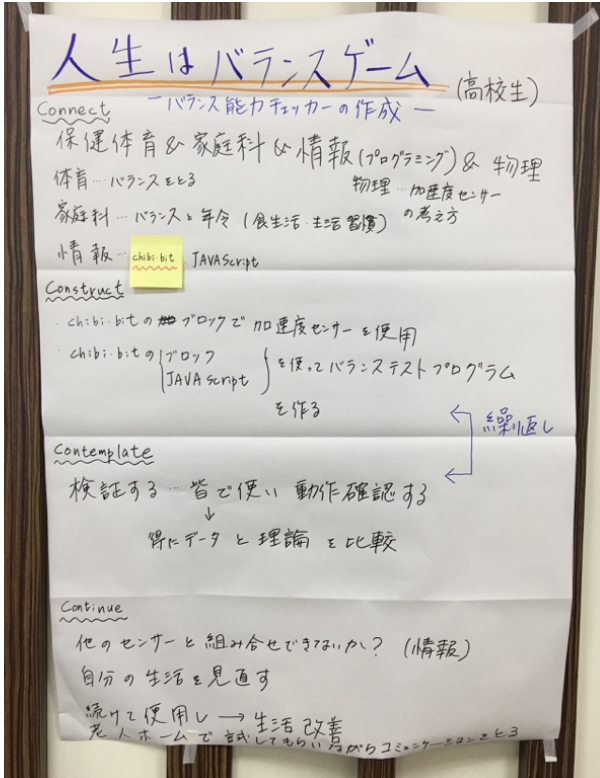 人生はバランスゲーム
(高校生)
ーバランス能力チェッカーの作成ー
Connect
保健体育&家庭科&情報(プログラミング)&物理
体育…バランスをとる
物理…加速度センサー
の考え方
家庭科…バランスと年令(食生活・生活習慣)
情報… chibi:bit JAVAScript
Construct
・chibi:bitのブロックで加速度センサーを使用
・chibi:bitの{ブロック
JAVAScript}を使ってバランステストプログラム
を作る
繰り返し
Contemplate
検証する…皆で使い動作確認する
↓
得たデータと理論を比較
Continue
他のセンサーと組み合せできないか?(情報)
自分の生活を見直す
続けて使用し→生活改善
老人ホームで試してもらいながらコミュニケーションをとる